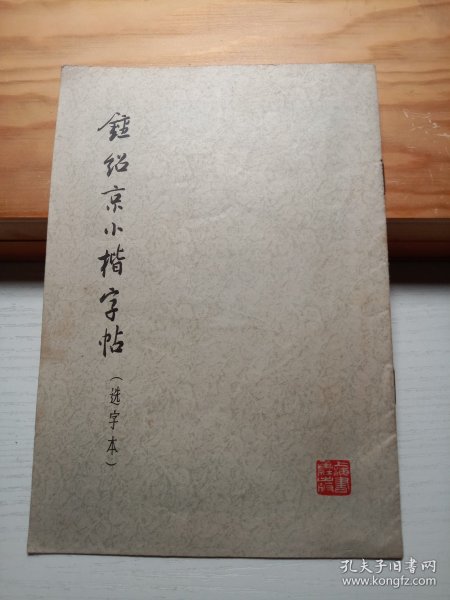 鍾绍京小楷字帖
(选字本)
上海书画社
孔夫子旧书网
www.kongfz.com